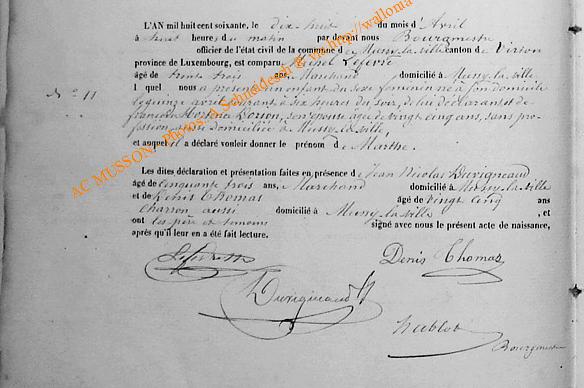 L'AN mil huit cent soixante, le dix-huit du mois d'Avril
à huit heures du matin par devant nous Bourgmestre
officier de l'état civil de la commune de Mussy-la-ville canton de Virton
province de Luxembourg, est comparu Michel Lefevre
âgé de trente trois ans, Marchand domicilié à Mussy-la-ville
N° 11
lequel nous a présenté un enfant du sexe féminin né à son domicile
le quinze avril courant à six heures du soir, de lui déclarant et de
son épouse âgée de vingt cinq ans, sans pro-
fession, aussi domiciliée à Mussy-la-ville,
et auquel il a déclaré vouloir donner le prénom de Marthe.
Les dites déclaration et présentation faites en présence de Jean Nicolas Duvigneaud
âgé de cinquante trois ans, Marchand domicilié à Mussy-la-ville
et de Denis Thomas âgé de vingt cinq ans
Charron aussi domicilié à Mussy-la-ville, et
ont les père et témoins signé avec nous le présent acte de naissance,
après qu'il leur en a été fait lecture.
Denis Thomas
Duvigneaud
Bourgmestre
AC MUSSON, Photos: A Schneidesch & via http://wallonia